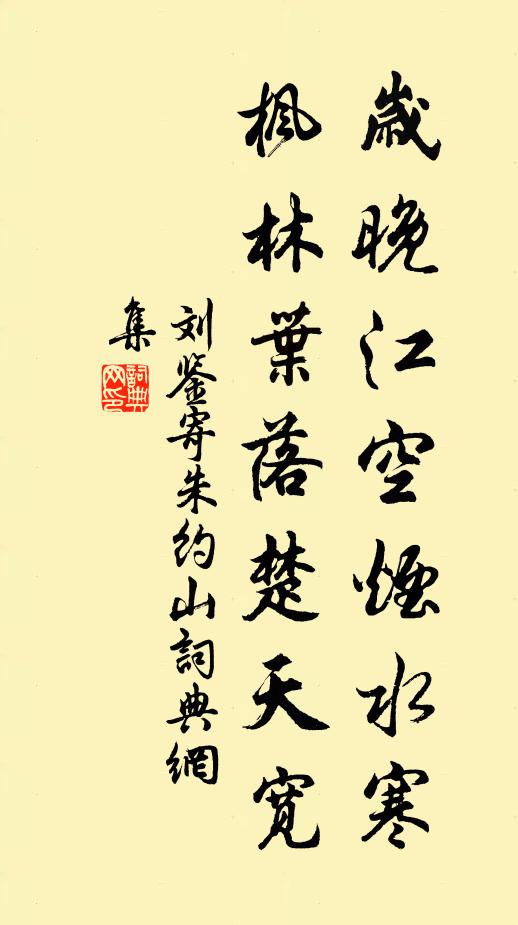 歲晚江空煙水寒
枫林葉落楚天寬
刘鉴寄朱约山詞典網
集
詞典
网印